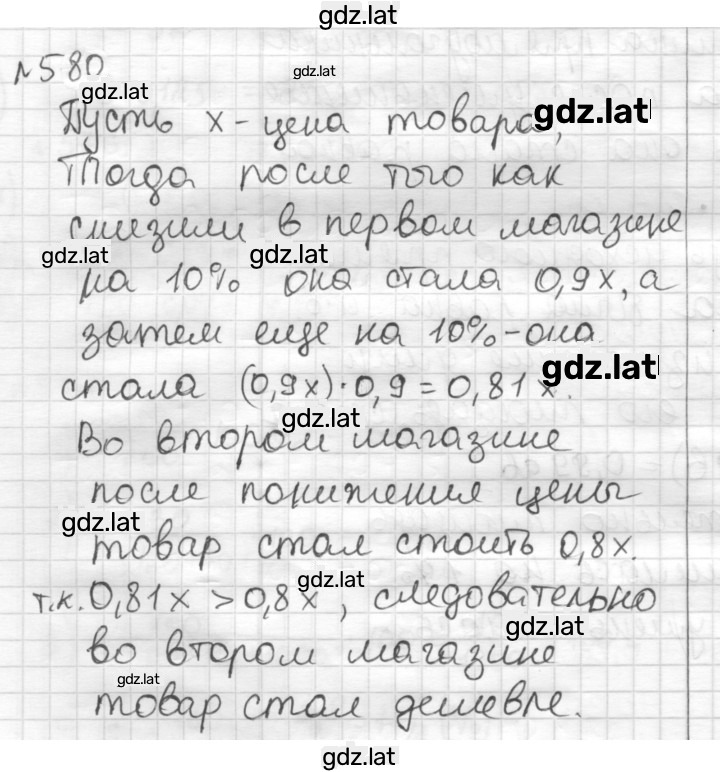 gdz.lat
№580
gdz.lat
gdz.lat
Пусть x - цена товара,
gdz.lat
Тогда после того как
снизили в первом магазине
gdz.lat
gdz.lat
на 10% она стала 0,9x, а
затем еще на 10% - она
стала (0,9x)·0,9 = 0,81x.
gdz.lat
gdz.lat
Во втором магазине
после понижения цены
gdz.lat
товар стал стоить 0,8x.
gdz.lat
т.к. 0,81x > 0,8x, следовательно
gdz.lat
во втором магазине
gdz.lat
товар стал дешевле.
gdz.lat